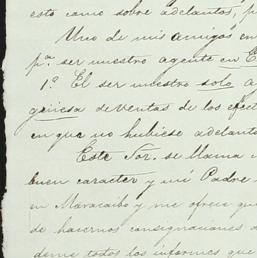 esto como sobre adelantos, p
Uno de mis amigos en
pª ser nuestro agente en E
1º El ser nuestro solo a
de ventas de los efect
en que no hubiese adelanto
Este Sor. se llama
buen caracter y mi Padre
en Maracaibo y me ofrece que
de hacernos consignaciones
deme todos los informes que